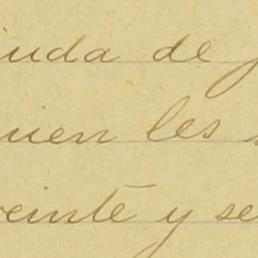 iuda de
uien les
veinte y se